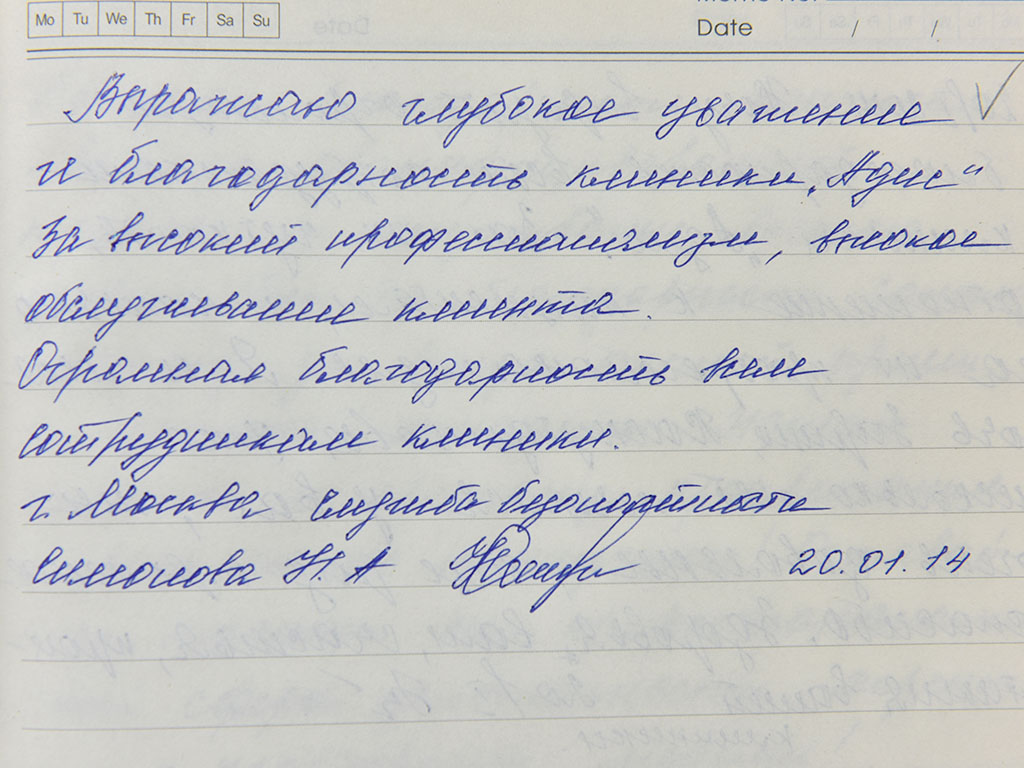 Mo Tu We Th Fr Sa Su
Date / /
Выражаю глубокое уважение
и благодарность клиники „Адис“
за высокий профессионализм, высокое
обслуживание клиента.
Огромная благодарность всем
сотрудникам клиники.
г. Москва служба безопасности
Н. А 20.01.14